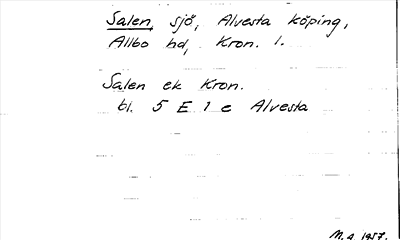 Salen, sjö, Alvesta köping,
Allbo hd, Kron. l.
Salen ek Kron.
bl. 5 E 1 e Alvesta
M.a. 1957.